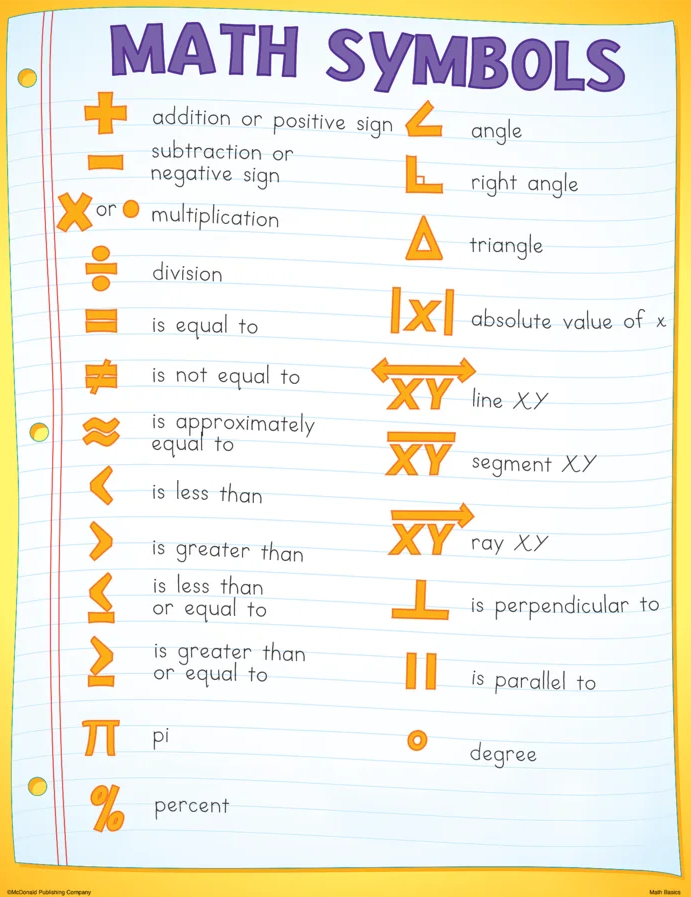 MATH SYMBOLS
+ addition or positive sign
− subtraction or
negative sign
× or • multiplication
÷ division
= is equal to
≠ is not equal to
≈ is approximately
equal to
< is less than
> is greater than
≤ is less than
or equal to
≥ is greater than
or equal to
π pi
% percent
∠ angle
right angle
△ triangle
|x| absolute value of x
XY line XY
XY segment XY
XY ray XY
⊥ is perpendicular to
|| is parallel to
° degree
©McDonald Publishing Company
Math Basics